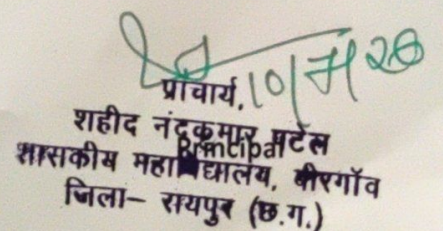 प्राचार्य,
शहीद नंदकुमार पटेल
Principal
शासकीय महाविद्यालय, बीरगाँव
जिला- रायपुर (छ.ग.)